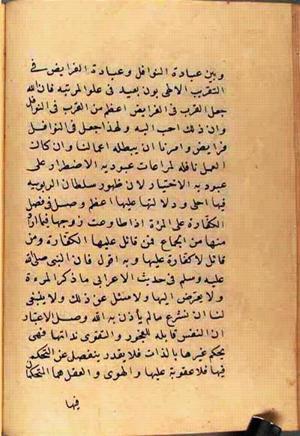 وبين عبادة النوافل وعبادة الفرايض في
التقريب الالهي بون بعيد في علو المرتبة فان الله
جعل القرب في الفرايض اعظم من القرب في النوافل
وان ذلك احب اليه ولهذا جعل في النوافل
فرايض وامرنا ان لا نبطل اعمالنا وان كان
العمل نافلة لمراعات عبودية الاضطرار على
عبودية الاختيار لان ظهور سلطان الربوبية
فيها اجلى ودلالتها عليها اعظم وصل في فصل
الكفارة على المرة اذا طاوعت زوجها فيما اراد
منها من الجماع فمن قائل عليها الكفارة ومن
قائل لا كفارة عليها وبه اقول فان النبي صلى الله
عليه وسلم في حديث الاعرابي ما ذكر المرءة
ولا تعرض اليها ولا سئل عن ذلك ولا ينبغي
لنا ان نشرع ما لم ياذن به الله وصل الاعتبار
ان النفس قابلة للفجور والتقوى بذاتها فهي
بحكم غيرها بالذات فلا تقدر تنفصل عن التحكم
فيها فلا عقوبة عليها والهوى والعقل هما المتحكمان
فيها